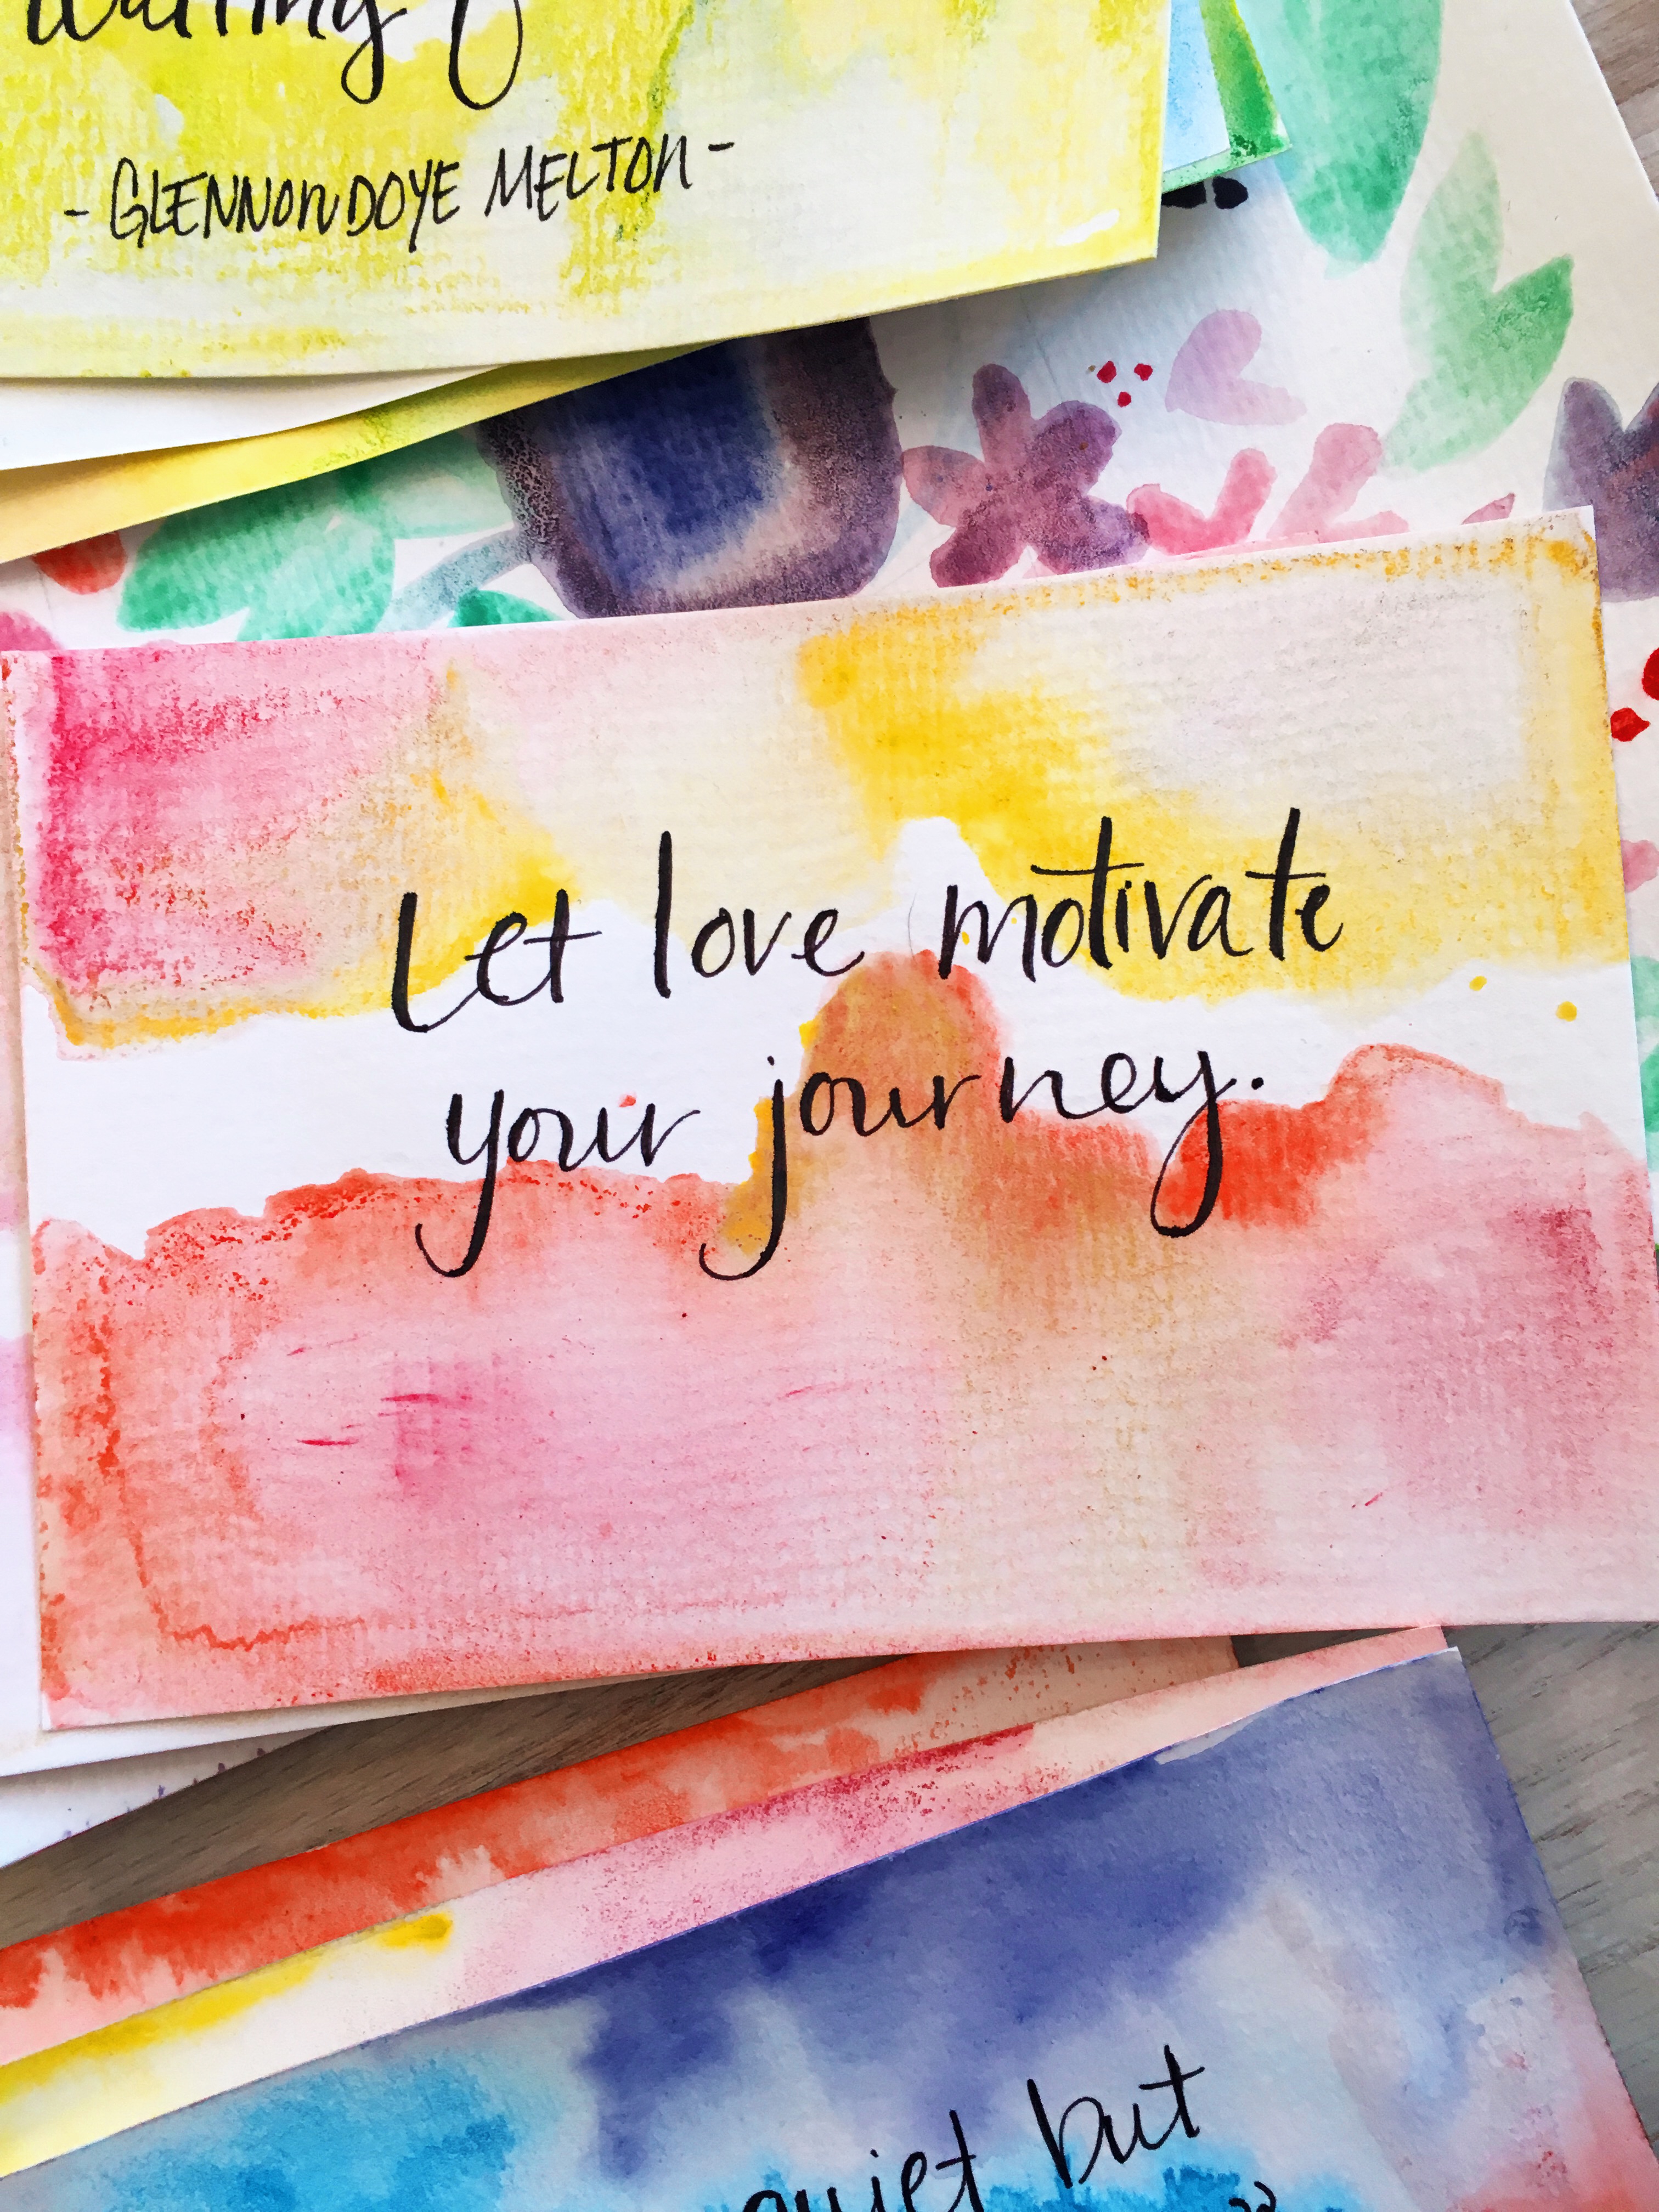 waiting
- GLENNONDOYE MELTON -
Let love motivate
your journey.
quiet but